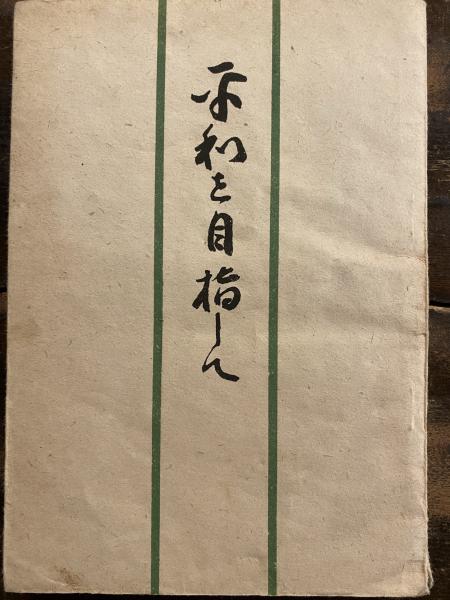 平和を目指して